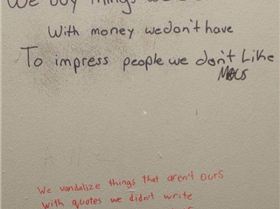 We buy things we
With money we don't have
To impress people we don't Like
We vandalize things that aren't ours
with quotes we didn't write